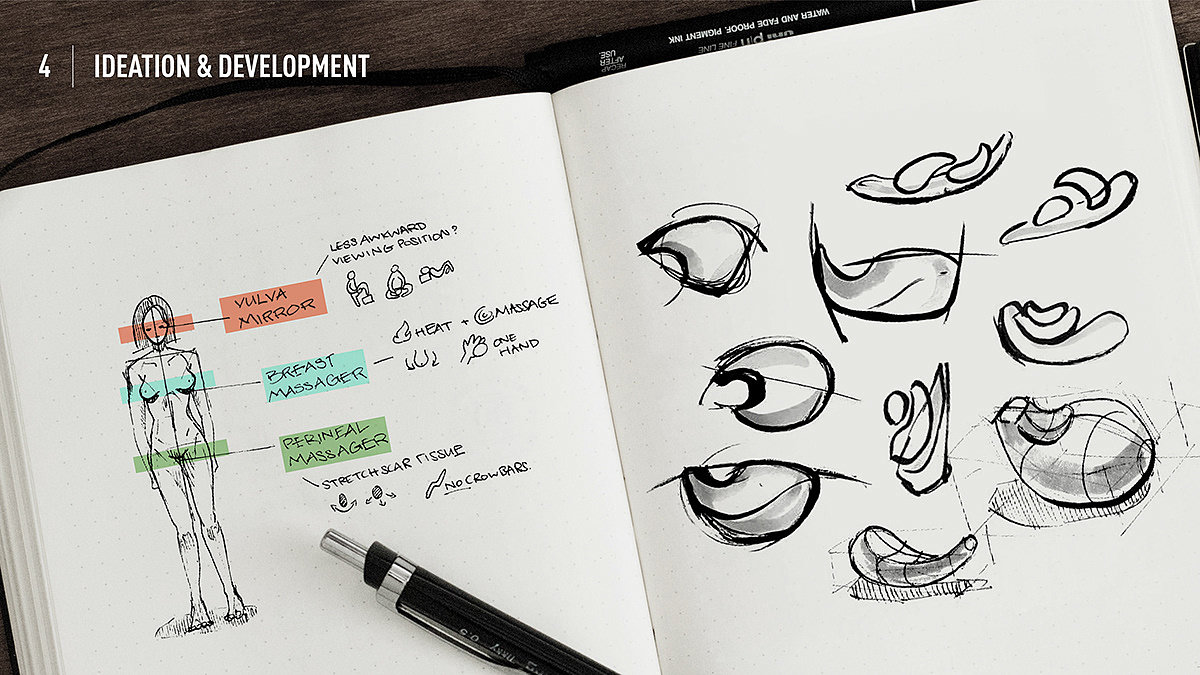 4 IDEATION & DEVELOPMENT
WATER AND FADE PROOF, PIGMENT INK
pin FINE LINE
RECAP
AFTER
USE.
LESS AWKWARD
VIEWING POSITION?
VULVA
MIRROR
HEAT + MASSAGE
ONE
HAND
BREAST
MASSAGER
PERINEAL
MASSAGER
STRETCH SCAR TISSUE
NO CROWBARS.
0.5